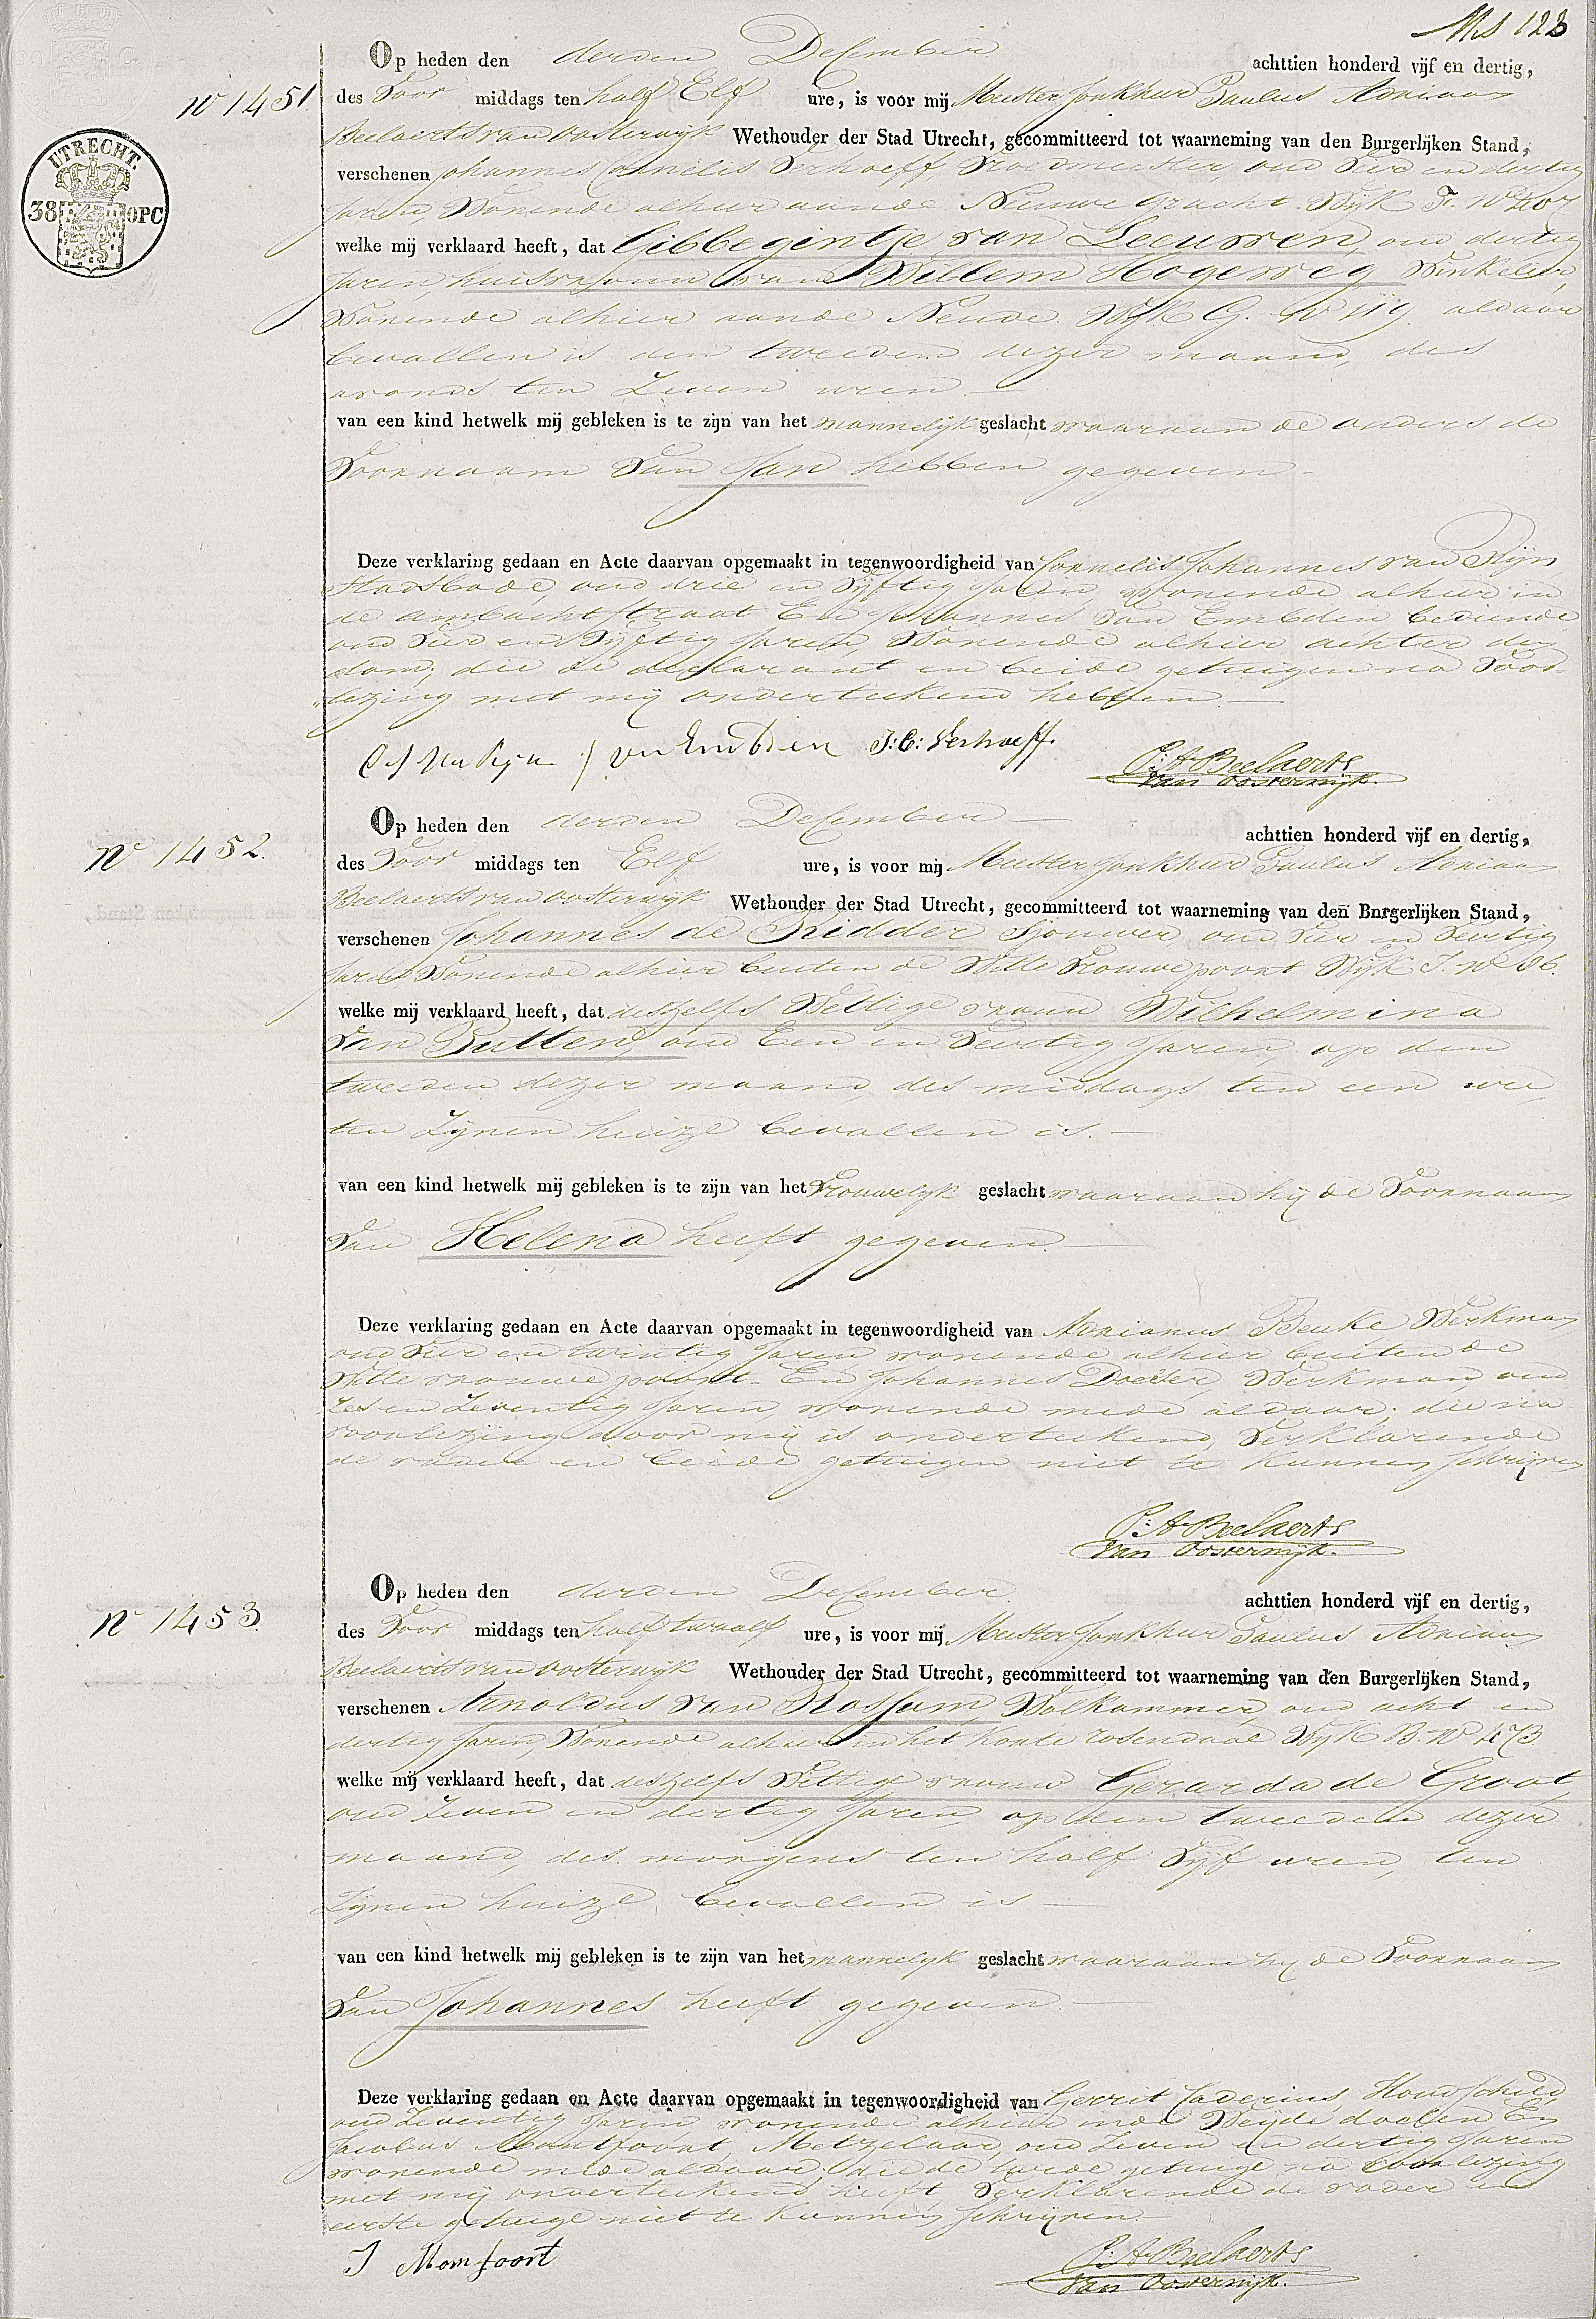 Ms 123
Op heden den derden December achttien honderd vijf en dertig,
No 1451
des Voor middags ten half Elf ure, is voor mij Meester Jonkheer Paulus Adriaan
Beelaerts van Oosterwijk Wethouder der Stad Utrecht, gecommitteerd tot waarneming van den Burgerlijken Stand,
UTRECHT.
38 OPC
verschenen Johannes Cornelis Verhoeff Vroedmeester oud Vier en dertig
Jaren, Wonende alhier aan de Nieuwe gracht Wijk F. No 207
welke mij verklaard heeft, dat Gibbegintje van Leeuwen, oud dertig
Jaren, huisvrouw van Willem Hogeweg Winkelier,
Wonende alhier aan de Neude Wijk G. No 119 aldaar
bevallen is den tweeden dezer maand, des
avonds ten Zeven uren
van een kind hetwelk mij gebleken is te zijn van het mannelijk geslacht waaraan de ouders de
Voornaam Van Jan hebben gegeven
Deze verklaring gedaan en Acte daarvan opgemaakt in tegenwoordigheid van Cornelis Johannes van Rijn
Stadsbode, oud drie en Vijftig Jaren, wonende alhier in
de ambachtstraat En Johannes Van Embden bediende
oud Vier en Vijftig Jaren, Wonende alhier achter den
dom, die de declarant en beide getuigen na Voor-
lezing met mij ondertekend hebben
C J Van Rijn J van Embden J: C: Verhoeff.
P: A Beelaerts
van Oosterwijk.
Op heden den derden December achttien honderd vijf en dertig,
No 1452.
des Voor middags ten Elf ure, is voor mij Meester Jonkheer Paulus Adriaan
Beelaerts van Oosterwijk Wethouder der Stad Utrecht, gecommitteerd tot waarneming van den Burgerlijken Stand,
verschenen Johannes de Ridder Sjouwer, oud Vier en Veertig
Jaren Wonende alhier buiten de Witte Vrouwe poort Wijk I. No 86.
welke mij verklaard heeft, dat deszelfs Wettige vrouw Wilhelmina
Van Putten, oud Een en Veertig Jaren, op den
tweeden dezer maand, des middags ten een ure,
ten Zijnen huize bevallen is.
van een kind hetwelk mij gebleken is te zijn van het Vrouwelijk geslacht waaraan hij de Voornaam
Van Helena heeft gegeven.
Deze verklaring gedaan en Acte daarvan opgemaakt in tegenwoordigheid van Adrianus Beuke Werkman
oud Vier en twintig Jaren wonende alhier buiten de
Witte vrouwe poort. En Johannes Werkman, oud
Zes en Zeventig Jaren, wonende mede aldaar; die na
voorlezing door mij is ondertekend, Verklarende
de vader en beide getuigen niet te kunnen schrijven
P: A Beelaerts
van Oosterwijk.
Op heden den derden December achttien honderd vijf en dertig,
No 1453.
des Voor middags ten half twaalf ure, is voor mij Meester Jonkheer Paulus Adriaan
Beelaerts van Oosterwijk Wethouder der Stad Utrecht, gecommitteerd tot waarneming van den Burgerlijken Stand,
verschenen Arnoldus van Rossum, Wolkammer, oud acht en
dertig Jaren, Wonende alhier in het Korte rosendaal Wijk B. No 473
welke mij verklaard heeft, dat deszelfs Wettige vrouw Gerarda de Groot,
oud Zeven en dertig Jaren, op den tweeden dezer
maand, des morgens ten half Vijf uren, ten
Zijnen huize, bevallen is
van een kind hetwelk mij gebleken is te zijn van het mannelijk geslacht waaraan hij de Voornaam
Van Johannes heeft gegeven.
Deze verklaring gedaan en Acte daarvan opgemaakt in tegenwoordigheid van Gerrit
oud Zeventig Jaren, wonende alhier in de Weijde doelen En
Jacobus Momfoort, Metzelaar, oud Zeven en dertig Jaren
wonende mede aldaar; die de tweede getuige na voorlezing
met mij ondertekend heeft, Verklarende de vader en
eerste getuige niet te kunnen schrijven
J Momfoort
P: A Beelaerts
van Oosterwijk.